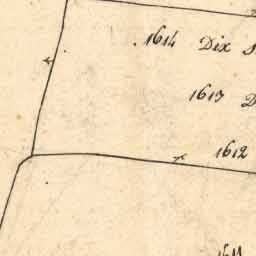 1614 Dix
1613 D
1612